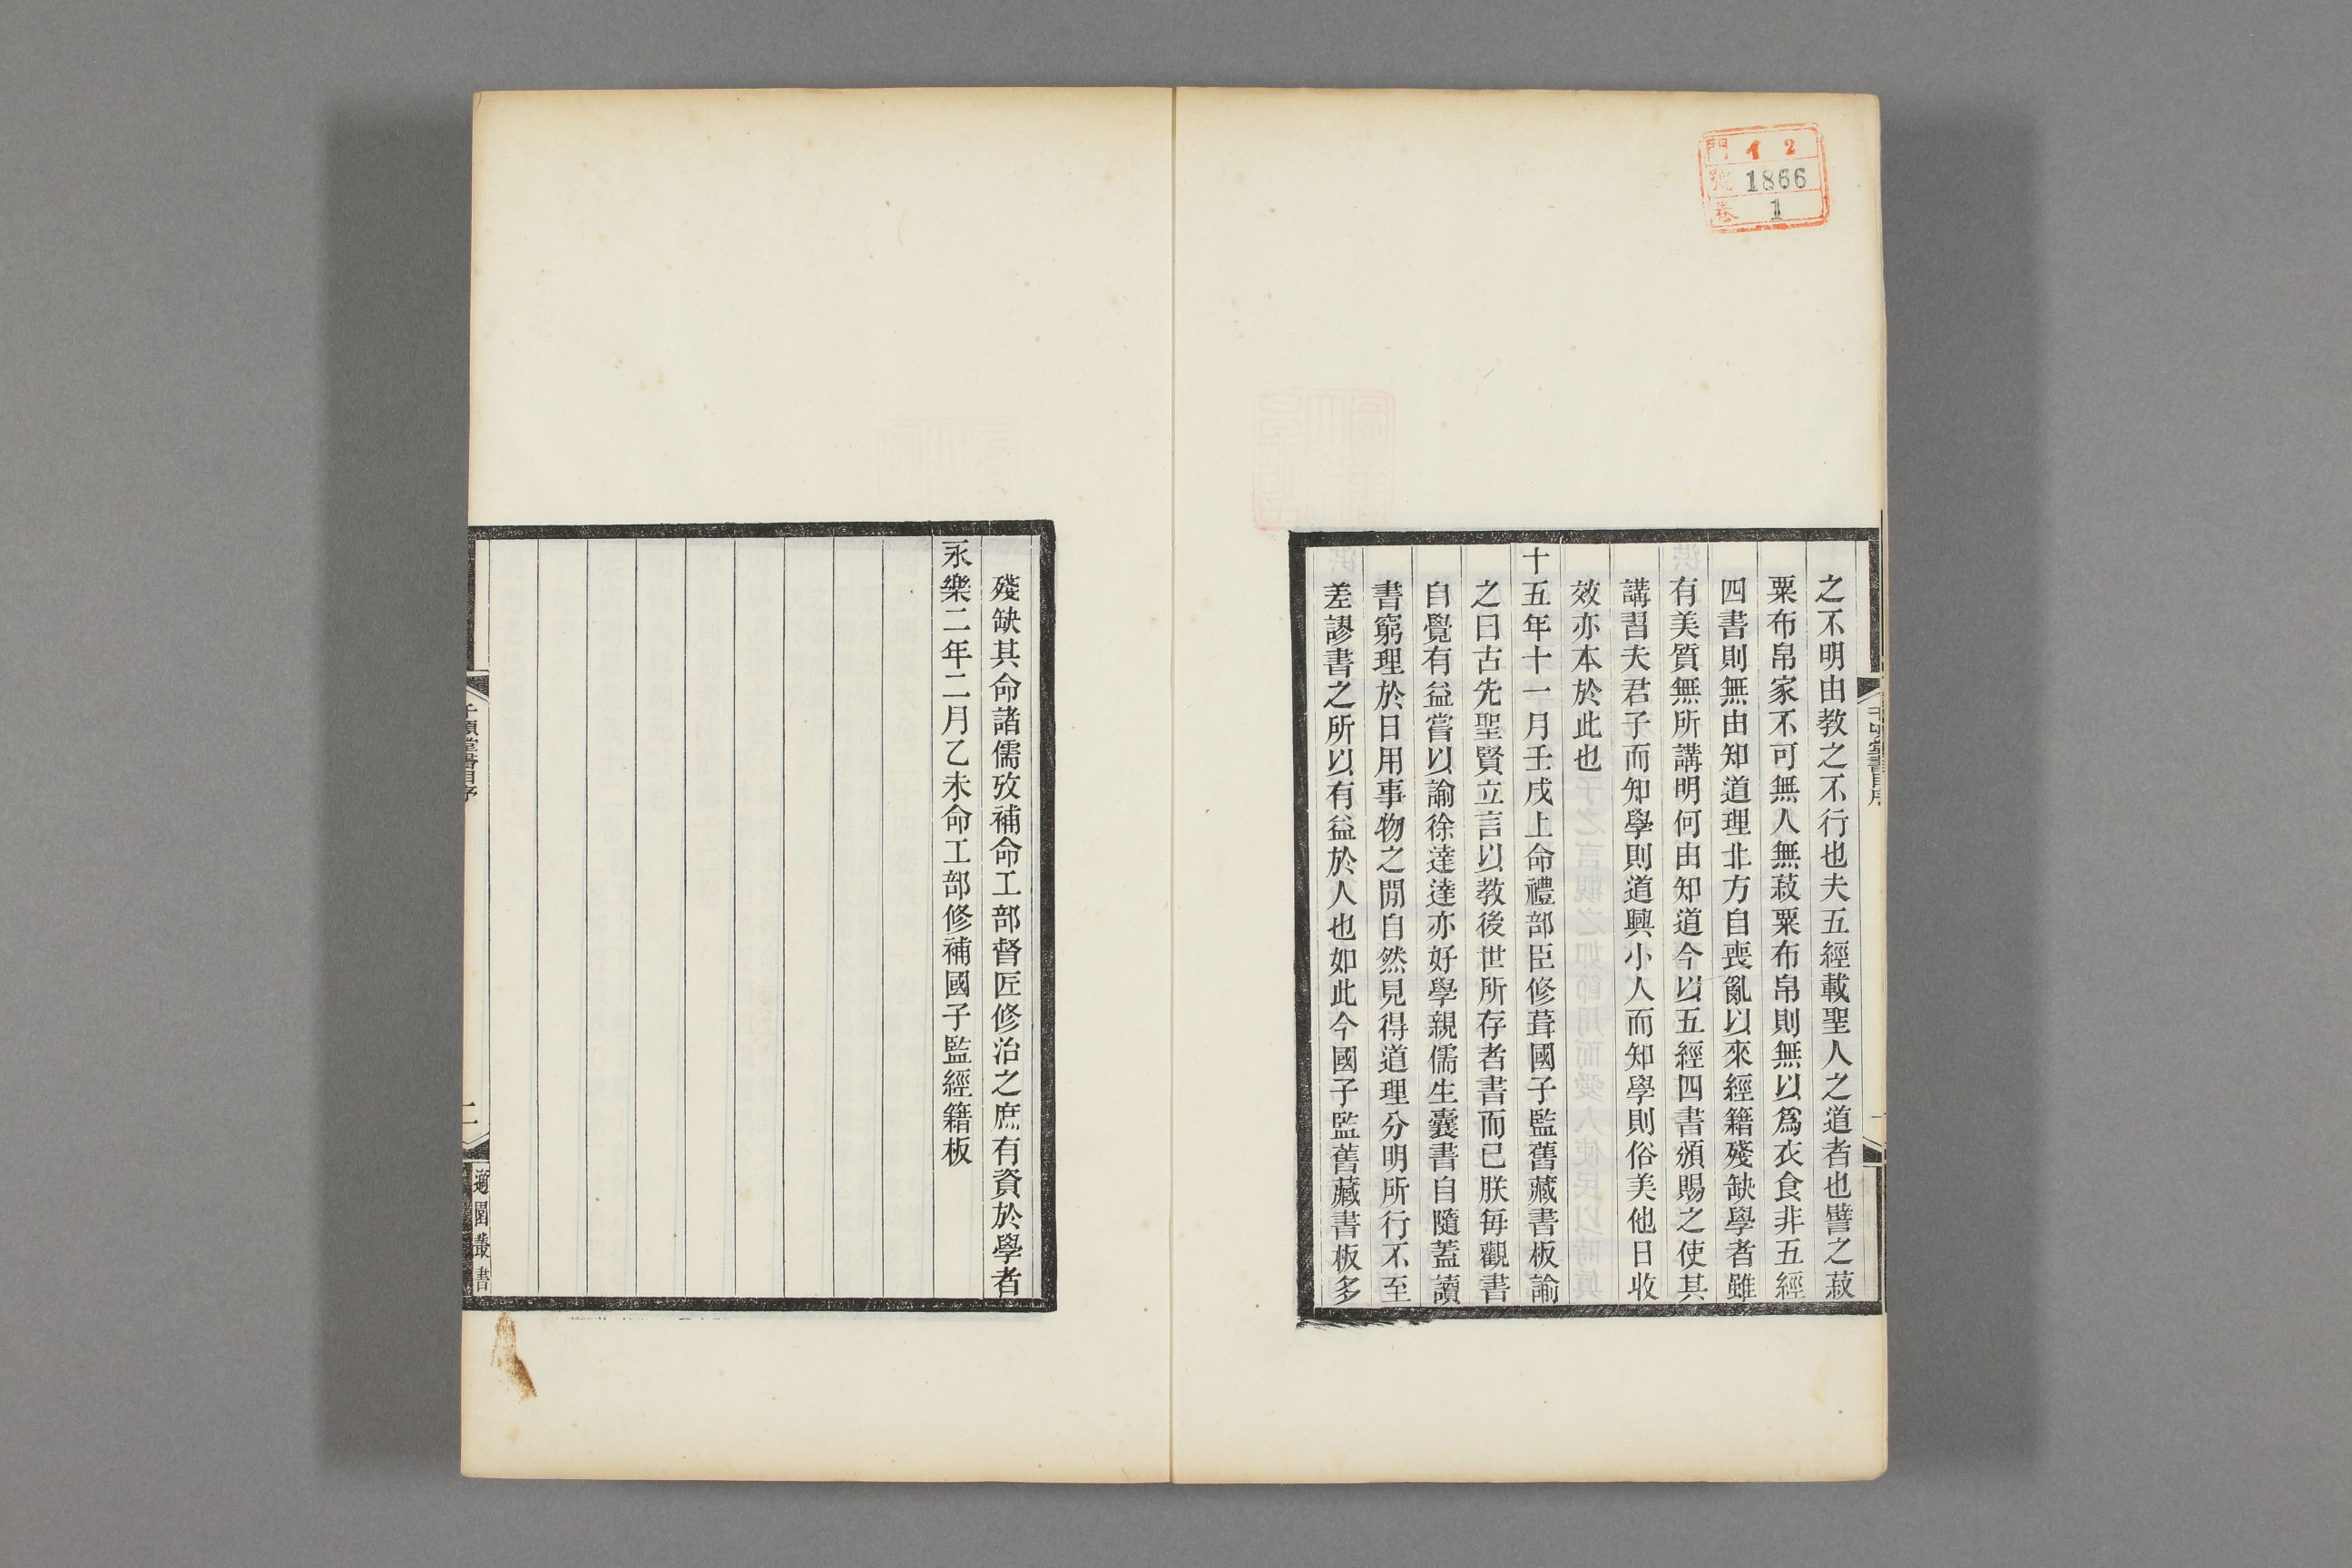 門 12
號 1866
卷 1
之不明由教之不行也夫五經載聖人之道者也譬之菽
粟布帛家不可無人無菽粟布帛則無以爲衣食非五經
四書則無由知道理北方自喪亂以來經籍殘缺學者雖
有美質無所講明何由知道今以五經四書頒賜之使其
講習夫君子而知學則道興小人而知學則俗美他日收
效亦本於此也
十五年十一月壬戌上命禮部臣修葺國子監舊藏書板諭
之曰古先聖賢立言以教後世所存者書而已朕每觀書
自覺有益嘗以諭徐達達亦好學親儒生囊書自隨蓋讀
書窮理於日用事物之閒自然見得道理分明所行不至
差謬書之所以有益於人也如此今國子監舊藏書板多
殘缺其命諸儒攷補命工部督匠修治之庶有資於學者
永樂二年二月乙未命工部修補國子監經籍板
千頃堂書目序
二
適園叢書